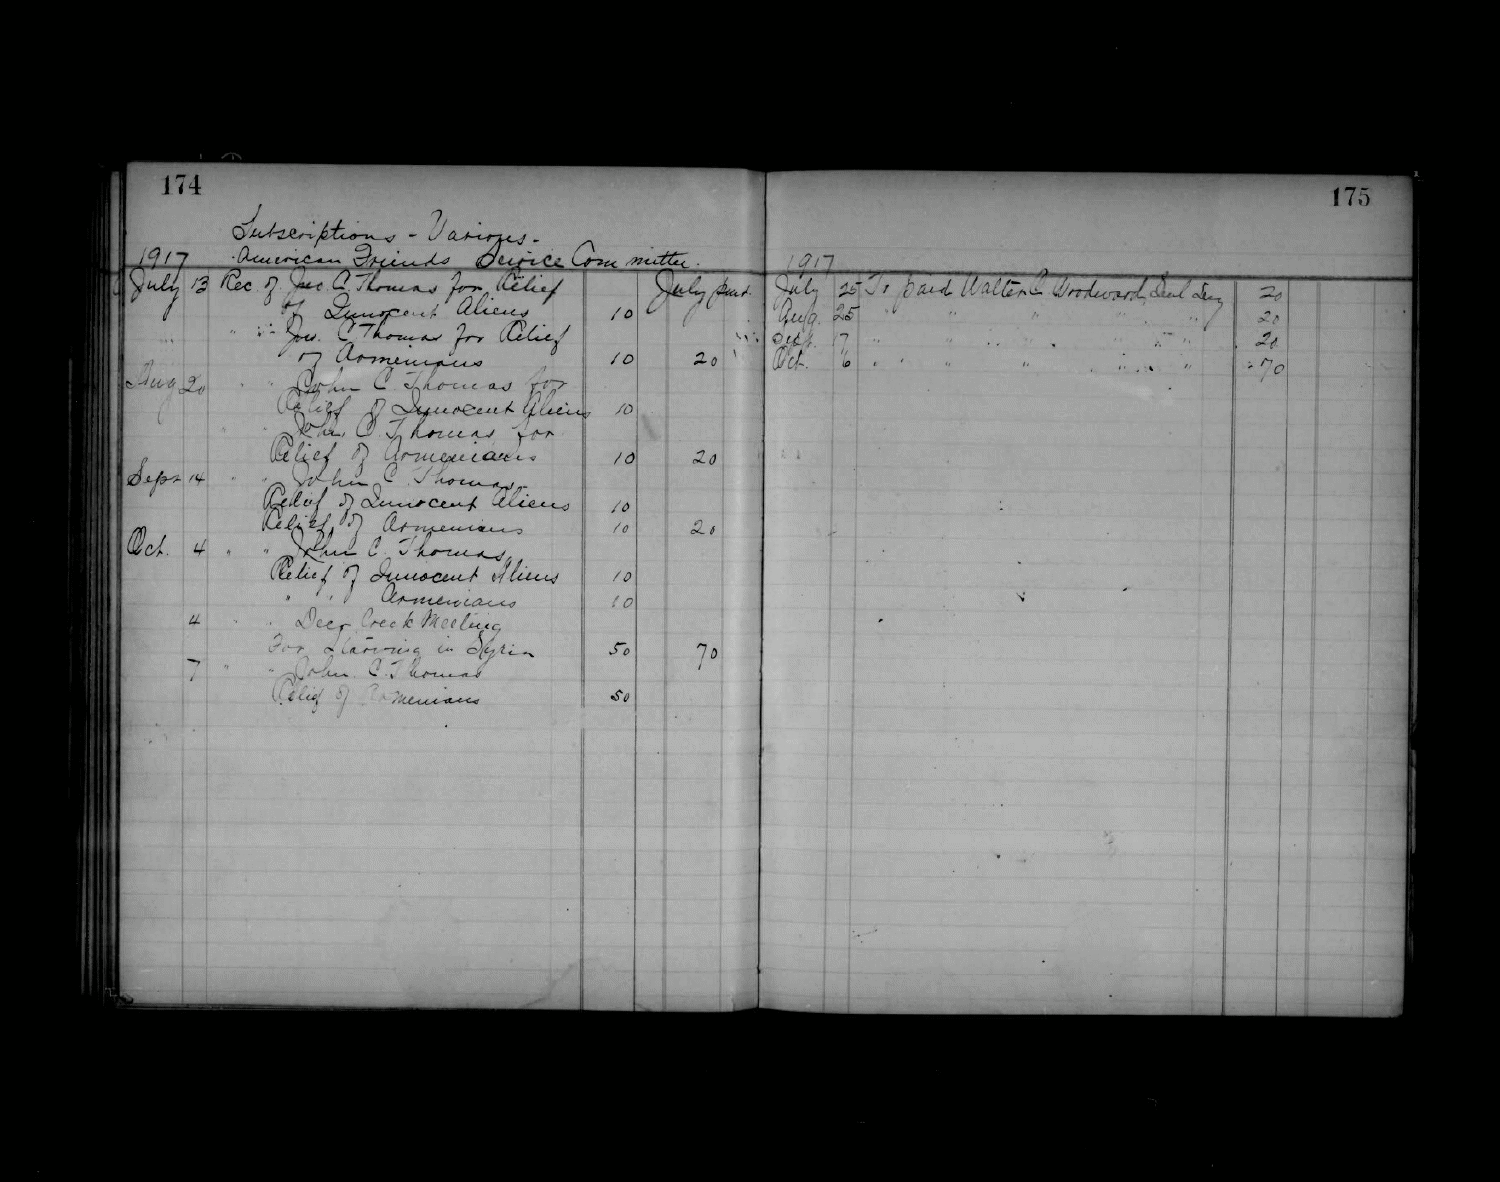 174
Subscriptions - Various -
1917 American Friends Service Committee.
July 13 Rec. of Jno. C. Thomas for Relief July paid.
of Innocent Aliens 10
" " Jno. C. Thomas for Relief
of Armenians 10 20
Aug 20 " " John C. Thomas for
Relief of Innocent Aliens 10
" " John C. Thomas for
Relief of Armenians 10 20
Sept 14 " " John C. Thomas
Relief of Innocent Aliens 10
Relief of Armenians 10 20
Oct. 4 " " John C. Thomas
Relief of Innocent Aliens 10
" " Armenians 10
4 " " Deer Creek Meeting
For Starving in Syria 50 70
7 " " John C. Thomas
Relief of Armenians 50
175
1917
July 25 To paid Walter C. Woodward, 20
Aug. 25 " " " " " 20
Sept. 17 " " " " " 20
Oct. 6 " " " " " 70